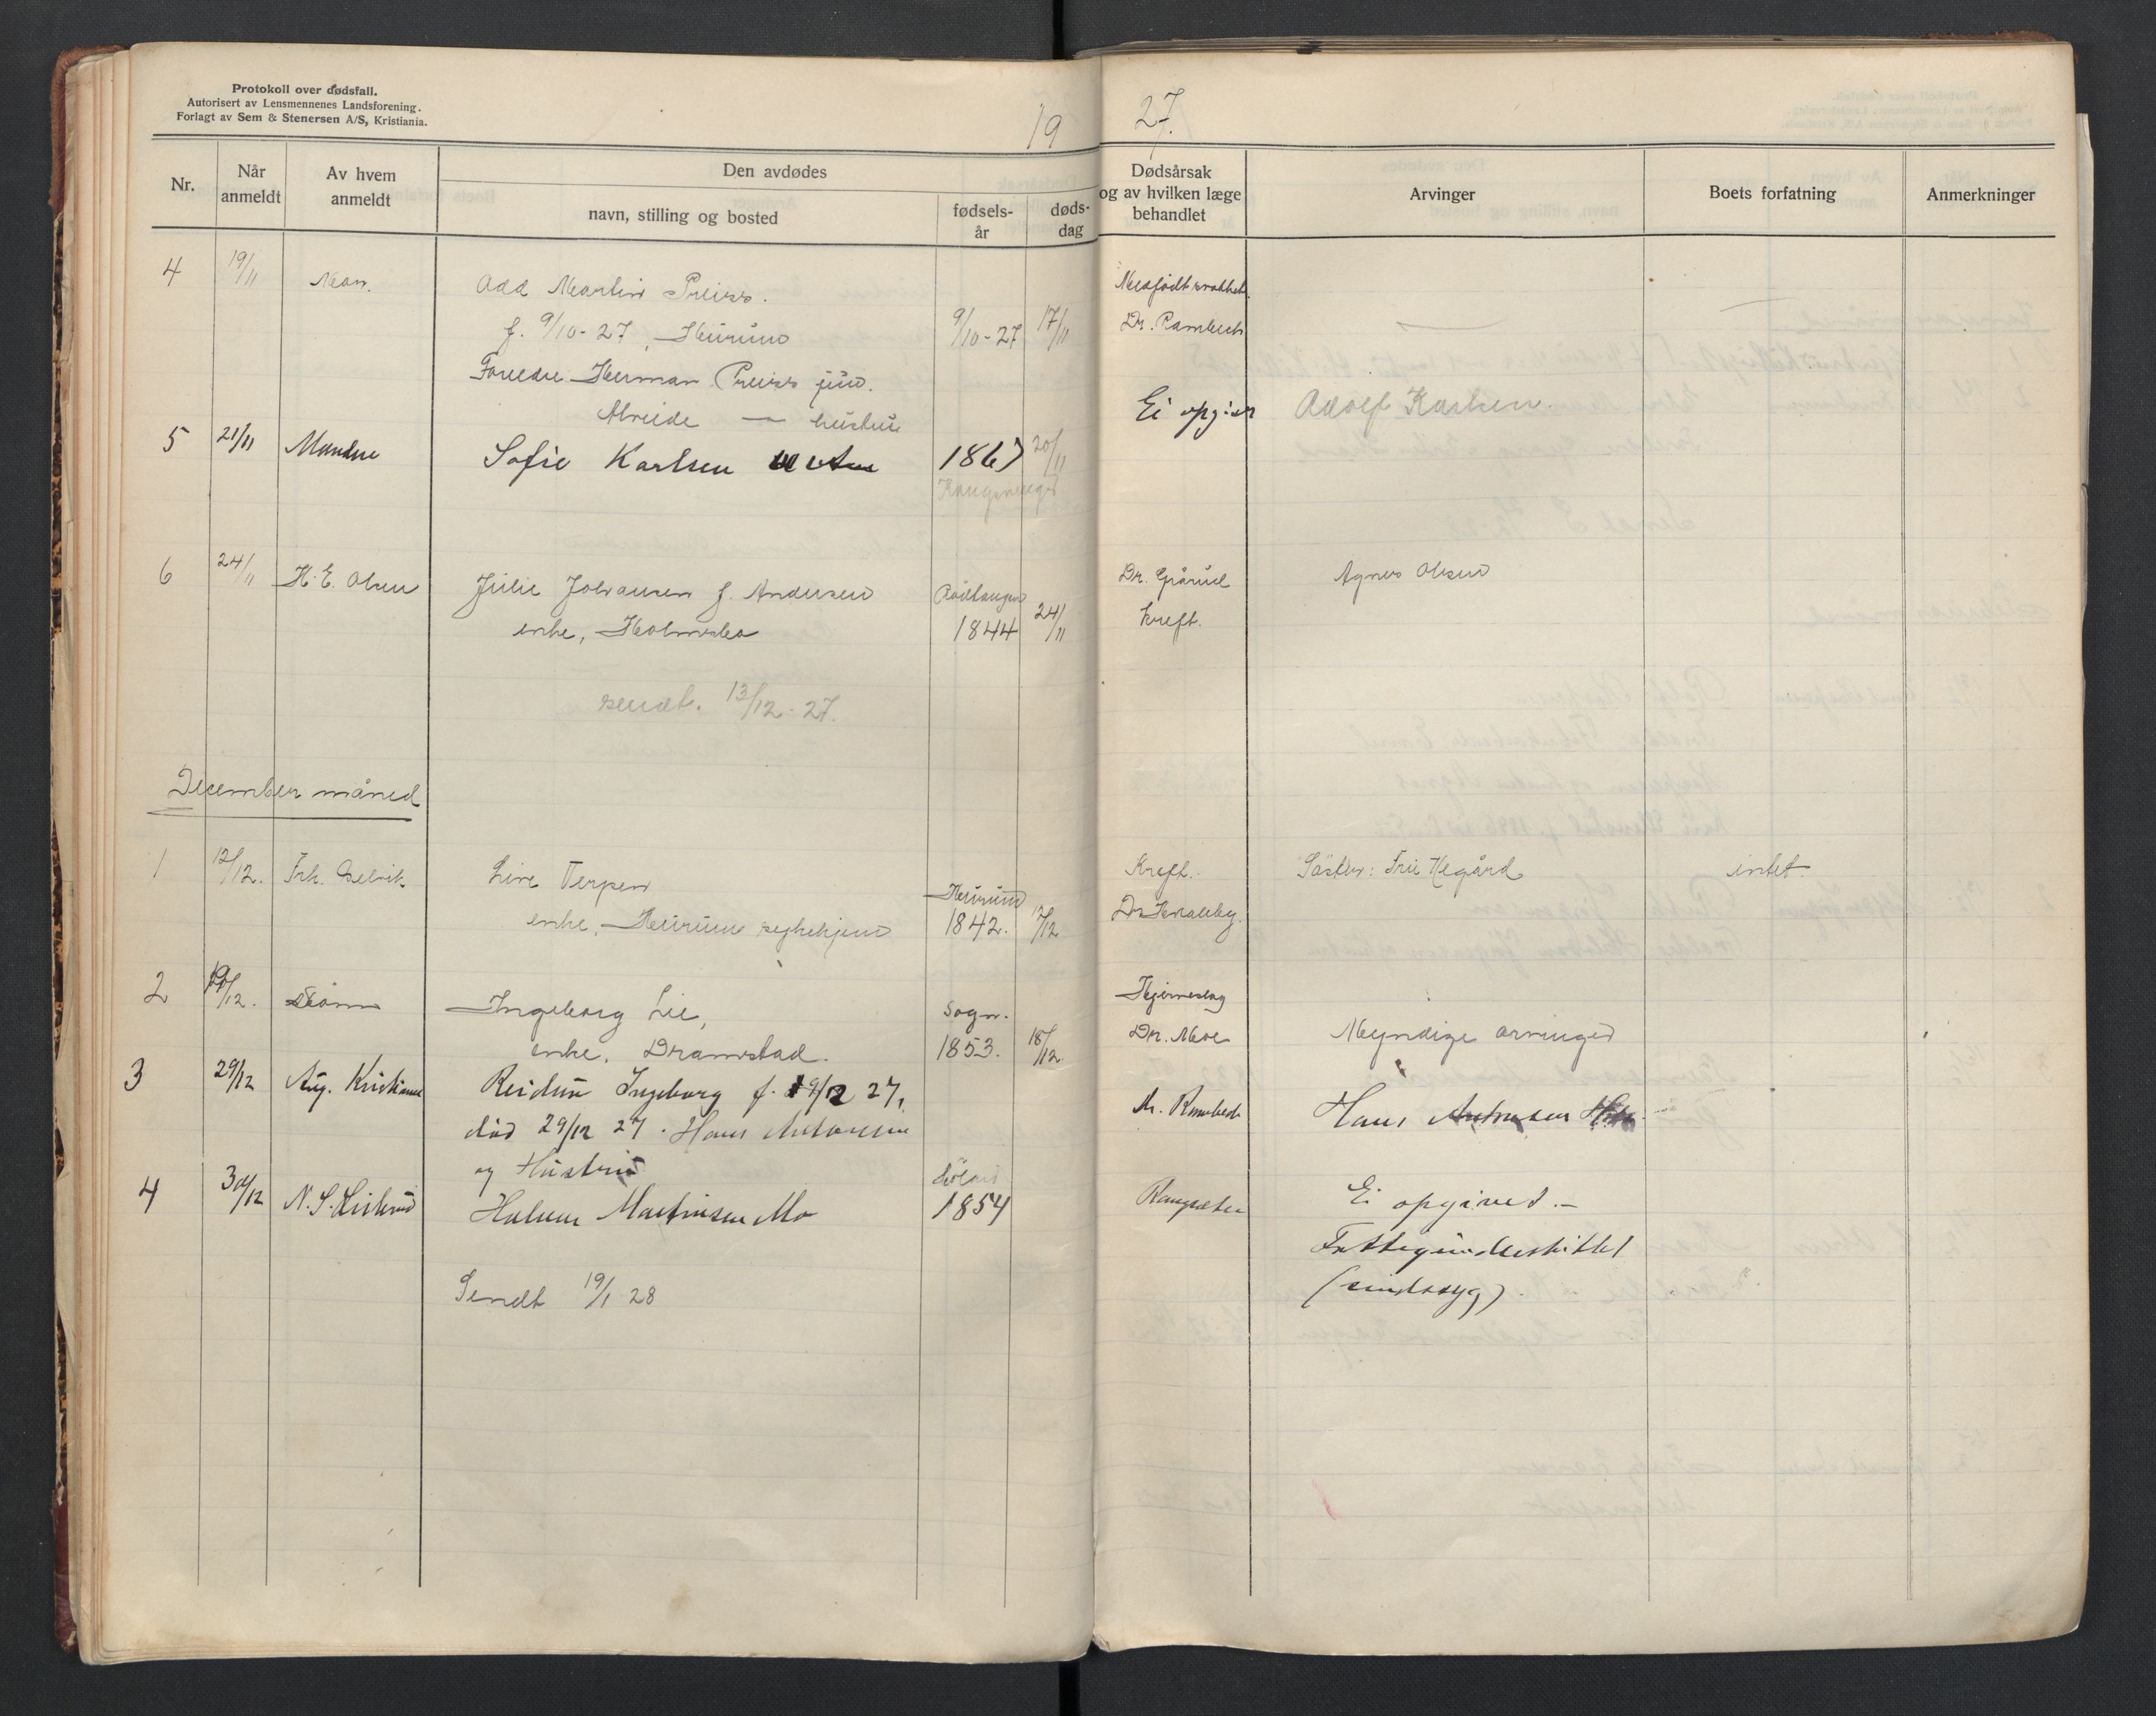 Protokoll over dødsfall.
Autorisert av Lensmennenes Landsforening.
Forlagt av Sem & Stenersen A/S, Kristiania.
19 27.
Nr.
Når anmeldt
Av hvem anmeldt
Den avdødes
navn, stilling og bosted
fødsels-år
døds-dag
Dødsårsak og av hvilken læge behandlet
Arvinger
Boets forfatning
Anmerkninger
4 19/11 Odd Martin Preiss. Medfødt svakhet.
f. 9/10-27, Hurum 9/10-27 17/11 Dr. Rambech
Foreldre Herman Preiss jun.
hustru
5 21/11 Manden Sofie Karlsen 1867 20/11 Ei opgivet Adolf Karlsen.
6 24/11 H. E. Olsen Julie Johansen f. Andersen Dr. Agnes Olsen
enke, Holmsbo 1844 24/11 Kreft.
sendt. 13/12-27.
December måned
1 12/12. Frk. Selvik Live Terpen Hurum Kreft. Søster: Fru Hegård intet.
enke, Hurum sykehjem 1842. 12/12 Dr.
2 19/12. Sønn Ingeborg Lie, Sogn. Hjerneslag
enke, Dramstad. 1853. 18/12. Dr. Moe Myndige arvinger
3 29/12 Aug. Kristiansen Reidun Ingeborg f. 19/12 27, Dr. Rambech Hans
død 29/12 27. Hans Antonsen
og Hustru
4 30/12 Halvor Martinsen Mo Høland 1854 Ei opgivet.-
Fattigunderstøttet
(sindssyg).
Sendt 19/1 28